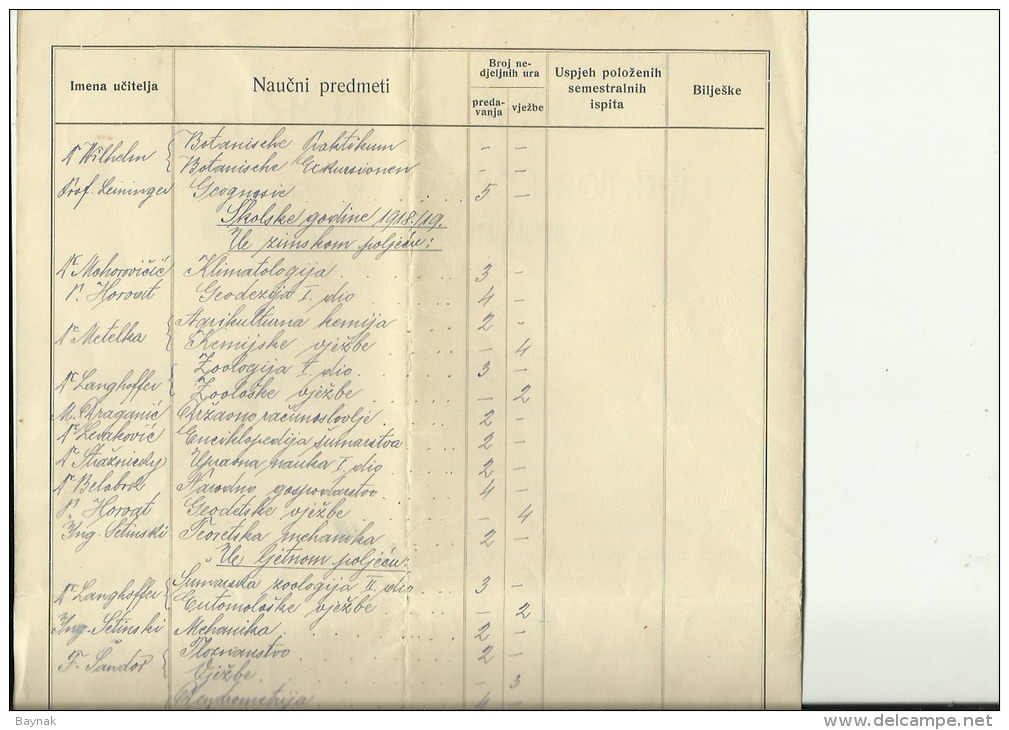 Imena učitelja Naučni predmeti Broj nedjeljnih ura Uspjeh položenih semestralnih ispita Bilješke
predavanja vježbe
Dr Wilhelm { Botanische Praktikum - -
Botanische Exkursionen - -
Prof. Leininger Geognosie 5 -
Školske godine 1918./19.
U zimskom poljeću:
Dr Mohorovičić Klimatologija 3 -
V. Horvat Geodezija I. dio 4 -
Dr Metelka { Agrikulturna kemija 2 -
Kemijske vježbe - 4
Dr Langhoffer { Zoologija I. dio 3 -
Zoološke vježbe - 2
M. Draganić Državno računoslovlje 2 -
Dr Levaković Enciklopedija šumarstva 2 -
Dr Stražnicky Upravna nauka I. dio 2 -
Dr Belobrk Narodno gospodarstvo 4 -
V. Horvat Geodetske vježbe - 4
Ing. Setinski Teoretska mehanika 2 -
U ljetnom poljeću:
Dr Langhoffer { Šumarska zoologija II. dio 3 -
Entomološke vježbe - 2
Ing. Setinski Mehanika 2 -
F. Šandor { Tloznanstvo 2 -
Vježbe - 3
Dendrometrija 4 -
Baynak www.delcampe.net